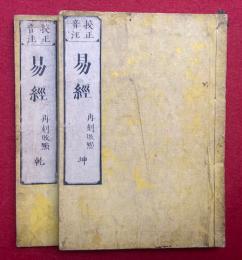 校正
音注
易經
再刻改點
坤
校正
音注
易經
再刻改點
乾